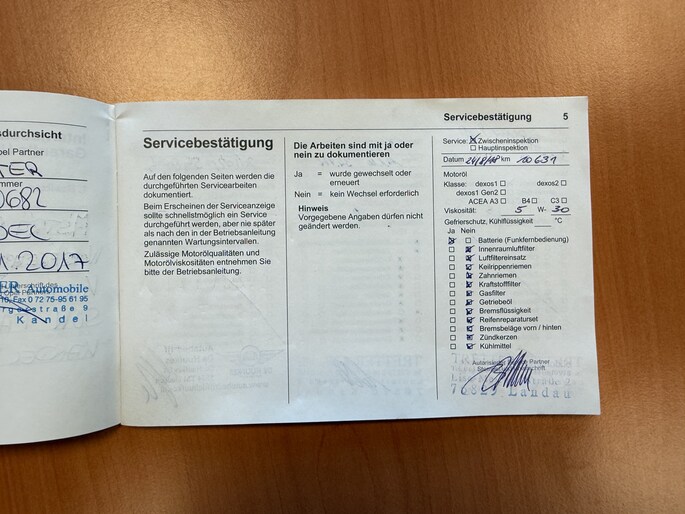 sdurchsicht
pel Partner
TER
ummer
0682
DEC
1.2017
ER Automobile
10, Fax 0 72 75-95 61 95
Kandel
Servicebestätigung 5
Servicebestätigung
Auf den folgenden Seiten werden die
durchgeführten Servicearbeiten
dokumentiert.
Beim Erscheinen der Serviceanzeige
sollte schnellstmöglich ein Service
durchgeführt werden, aber nie später
als nach den in der Betriebsanleitung
genannten Wartungsintervallen.
Zulässige Motorölqualitäten und
Motorölviskositäten entnehmen Sie
bitte der Betriebsanleitung.
Die Arbeiten sind mit ja oder
nein zu dokumentieren
Ja = wurde gewechselt oder
erneuert
Nein = kein Wechsel erforderlich
Hinweis
Vorgegebene Angaben dürfen nicht
geändert werden.
Service: Zwischeninspektion
Hauptinspektion
Datum km 10631
Motoröl
Klasse: dexos1 dexos2
dexos1 Gen2
ACEA A3 B4 C3
Viskosität: 5 W- 30
Gefrierschutz, Kühlflüssigkeit °C
Ja Nein
Batterie (Funkfernbedienung)
Innenraumluftfilter
Luftfiltereinsatz
Keilrippenriemen
Zahnriemen
Kraftstofffilter
Gasfilter
Getriebeöl
Bremsflüssigkeit
Reifenreparaturset
Bremsbeläge vorn / hinten
Zündkerzen
Kühlmittel
76829 Landau